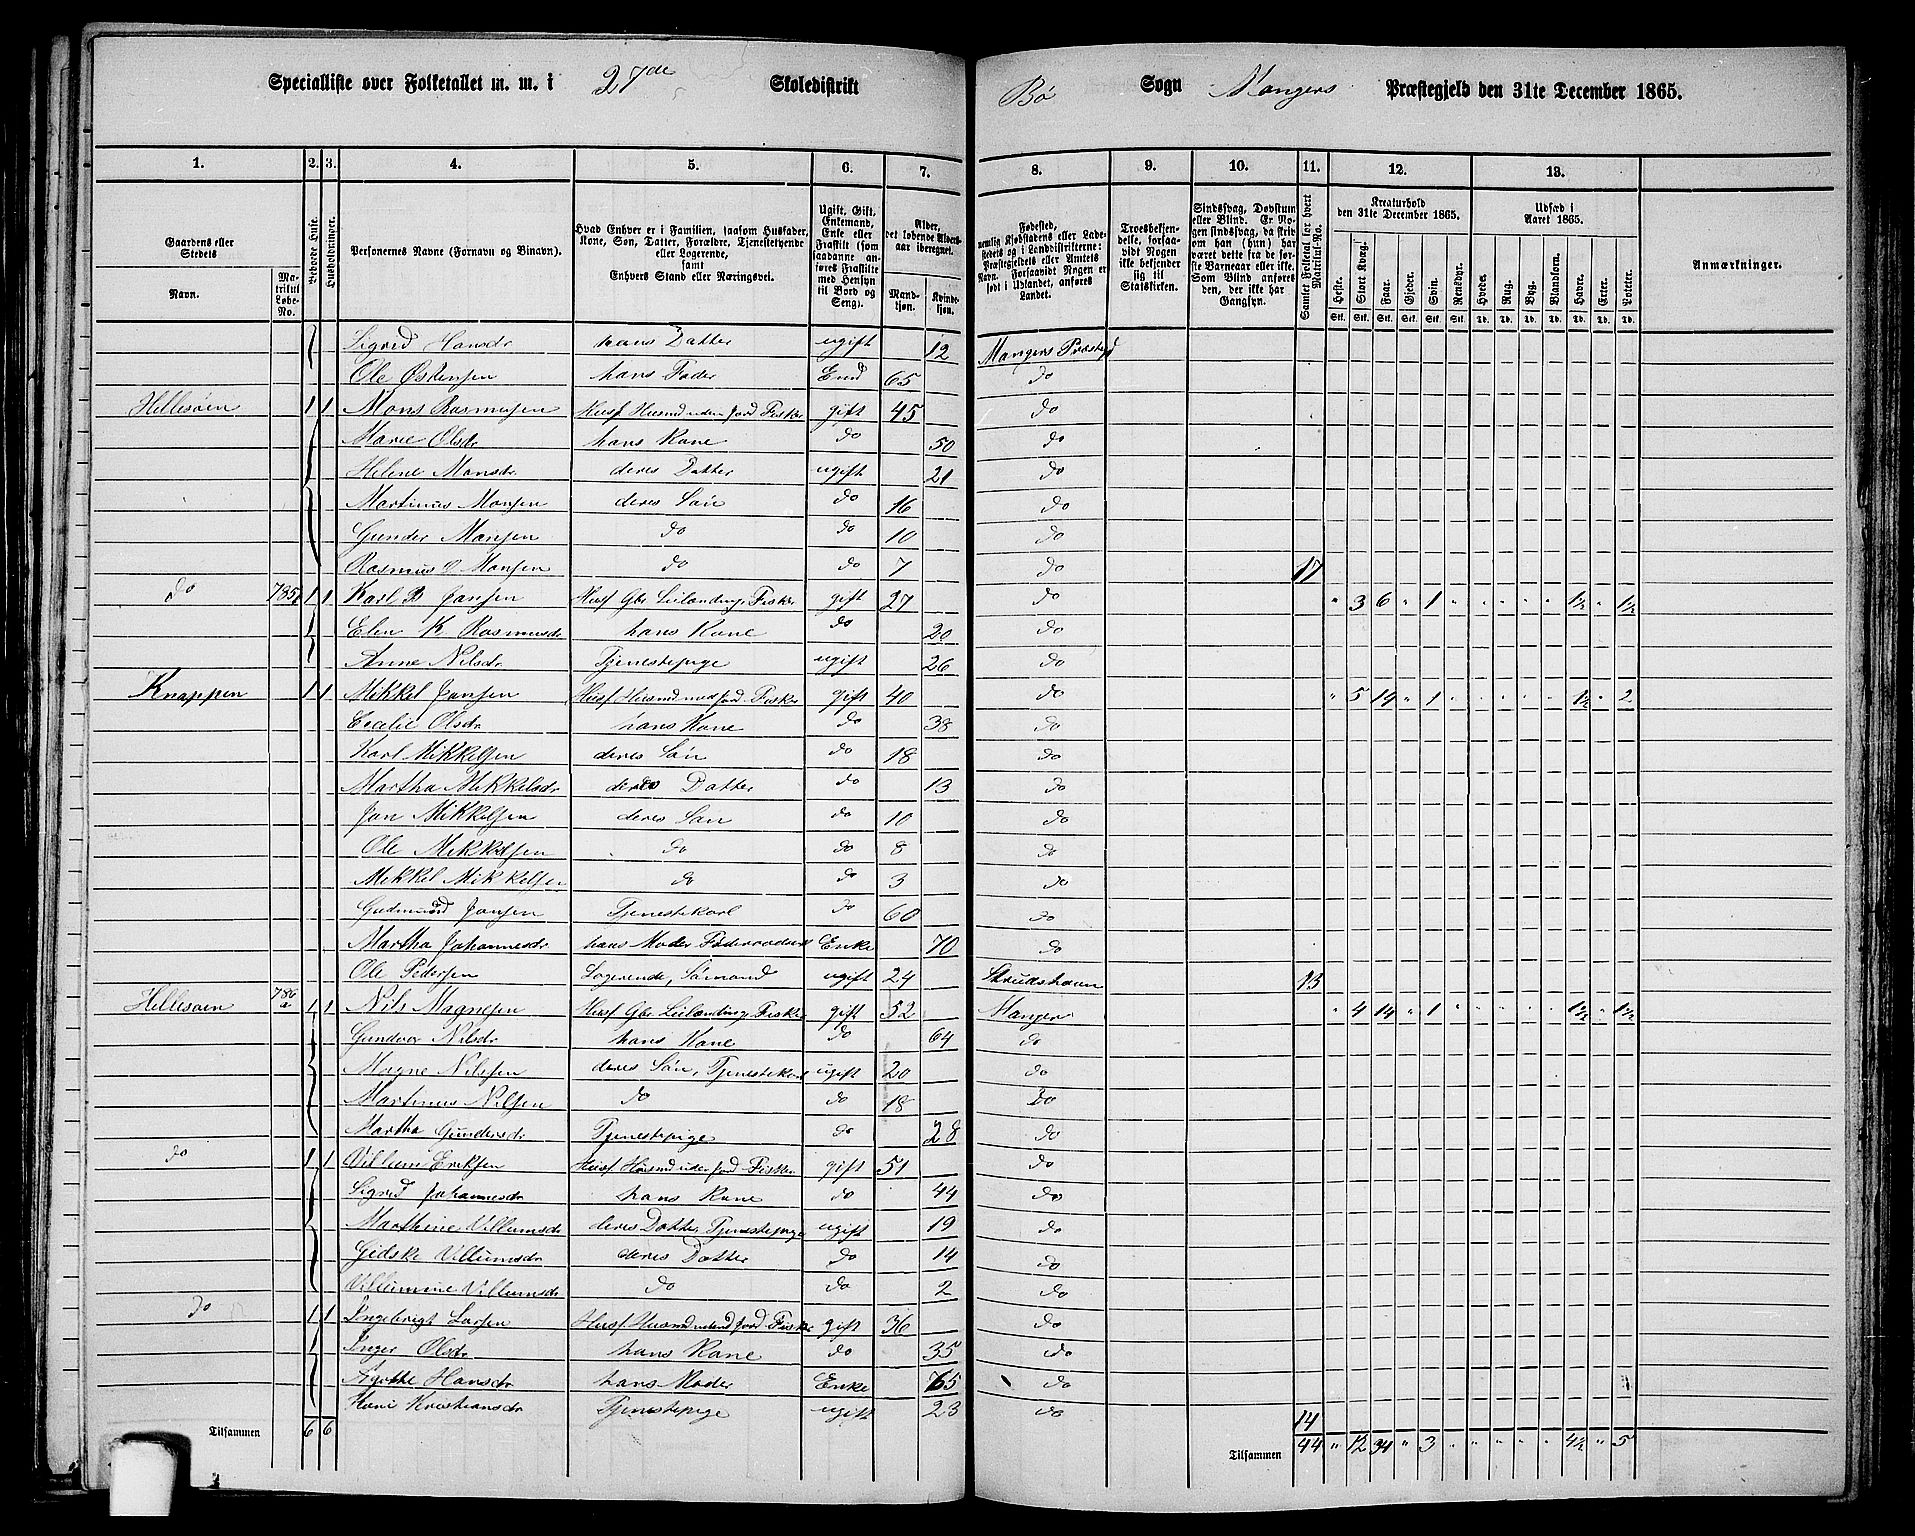 Specialliste over Folketallet m. m. i 27de Skoledistrikt Bö Sogn Mangers Præstegjeld den 31te December 1865.
1. 2. 3. 4. 5. 6. 7. 8. 9. 10. 11. 12. 13.
Gaardens eller Stedets Navn. Matrikul Løbe-No. Beboede Huse. Husholdninger. Personernes Navne (Fornavn og Binavn). Hvad Enhver er i Familien, saasom Husfader, Kone, Søn, Datter, Forældre, Tjenestetyende eller Logerende, samt Enhvers Stand eller Næringsvei. Ugift, Gift, Enkemand, Enke eller Fraskilt (som saadanne anføres Fraskilte med Hensyn til Bord og Seng). Alder, det løbende Aldersaar iberegnet. Mandkjøn. Kvindekjøn.
Fødested, nemlig Kjøbstadens eller Ladestedets og i Landdistrikterne: Præstegjeldets eller Amtets Navn. Forsaavidt Nogen er født i Udlandet, anføres Landet. Troesbekjendelse, forsaavidt Nogen ikke bekjender sig til Statskirken. Sindssvag, Døvstum eller Blind. Er Nogen sindssvag, da skrives om han (hun) har været dette fra de første Barneaar eller ikke. Som Blind anføres den, der ikke har Gangsyn. Samlet Folketal for hvert Matrikul-No. Kreaturhold den 31te December 1865. Udsæd i Aaret 1865. Anmærkninger.
Heste. Stort Kvæg. Faar. Gjeder. Svin. Rensdyr. Hvede. Rug. Byg. Blandkorn. Havre. Erter. Poteter.
Stk. Stk. Stk. Stk. Stk. Stk. Td. Td. Td. Td. Td. Td. Td.
Sigred Hansdr hans Datter ugift 12 Mangers Præstegjd
Ole Østensen hans Fader End 65 do
Hellesøen 1 1 Mons Rasmussen Husf Husmd uden jord Fisker gift 45 do
Marie Olsdr hans Kone do 50 do
Helene Monsdr deres Datter ugift 21 do
Martinus Monsen deres Søn do 16 do
Gunder Monsen do do 10 do
Rasmus O Monsen do do 7 do 17
do 785 1 1 Karl B Jansen Husf Gbr Leilænding Fisker gift 27 do " 3 6 " 1 " " " " " 1½ " 1½
Elen K Rasmusdr hans Kone do 20 do
Anne Nilsdr Tjenestepige ugift 26 do
Knappen 1 1 Mikkel Jansen Husf Husmd med jord Fisker gift 40 do " 5 14 " 1 " " " " " 1½ " 2
Cecilie Olsdr hans Kone do 38 do
Karl Mikkelsen deres Søn do 18 do
Martha Mikkelsdr deres Datter do 13 do
Jan Mikkelsen deres Søn do 10 do
Ole Mikkelsen do do 8 do
Mikkel Mikkelsen do do 3 do
Gudmund Jansen Tjenestekarl do 60 do
Martha Johannesdr hans Moder Føderaadsk Enke 70 do
Ole Pedersen Logerende, Sømand ugift 24 Skrudshavn 13
Hellesøen 786 a 1 1 Nils Magnesen Husf Gbr Leilænding Fisker gift 52 Manger " 4 14 " 1 " " " " " 1½ " 1½
Gundvor Nilsdr hans Kone do 64 do
Magne Nilssen deres Søn, Tjenestekarl ugift 20 do
Martinus Nilsen do do 18 do
Martha Gundersdr Tjenestepige do 28 do
do 1 1 Villum Eriksen Husf Husmd uden jord Fisker gift 51 do
Sigred Johannesdr hans Kone do 44 do
Marthine Villumsdr deres Datter Tjenestepige ugift 19 do
Gidske Villumsdr deres Datter do 14 do
Villumine Villumsdr do do 2 do
do 1 1 Ingebrigt Larsen Husf Husmd uden jord Fisker gift 36 do
Inger Olsdr hans Kone do 35 do
Agathe Hansdr hans Moder Enke 65 do
Kari Kristiansdr Tjenestepige ugift 23 do 14
Tilsammen 6 6 Tilsammen 44 " 12 34 " 3 " " " " " 4½ " 5